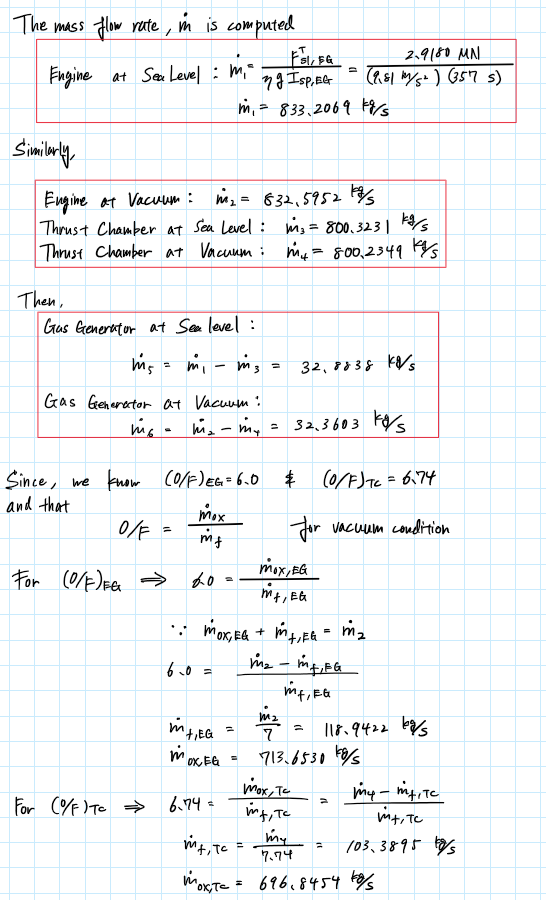 The mass flow rate, ṁ is computed
Engine at Sea Level : ṁ₁ = Fᵀsl,EG / η g Isp,EG = 2.9180 MN / (9.81 m/s²) (357 s)
ṁ₁ = 833.2069 kg/s
Similarly,
Engine at Vacuum : ṁ₂ = 832.5952 kg/s
Thrust Chamber at Sea Level : ṁ₃ = 800.3231 kg/s
Thrust Chamber at Vacuum : ṁ₄ = 800.2349 kg/s
Then,
Gas Generator at Sea level :
ṁ₅ = ṁ₁ - ṁ₃ = 32.8838 kg/s
Gas Generator at Vacuum :
ṁ₆ = ṁ₂ - ṁ₄ = 32.3603 kg/s
Since, we know (O/F)EG = 6.0 & (O/F)TC = 6.74
and that
O/F = ṁox / ṁf for vacuum condition
For (O/F)EG ⟹ 6.0 = ṁox,EG / ṁf,EG
∵ ṁox,EG + ṁf,EG = ṁ₂
6.0 = ṁ₂ - ṁf,EG / ṁf,EG
ṁf,EG = ṁ₂ / 7 = 118.9422 kg/s
ṁox,EG = 713.6530 kg/s
For (O/F)TC ⟹ 6.74 = ṁox,TC / ṁf,TC = ṁ₄ - ṁf,TC / ṁf,TC
ṁf,TC = ṁ₄ / 7.74 = 103.3895 kg/s
ṁox,TC = 696.8454 kg/s